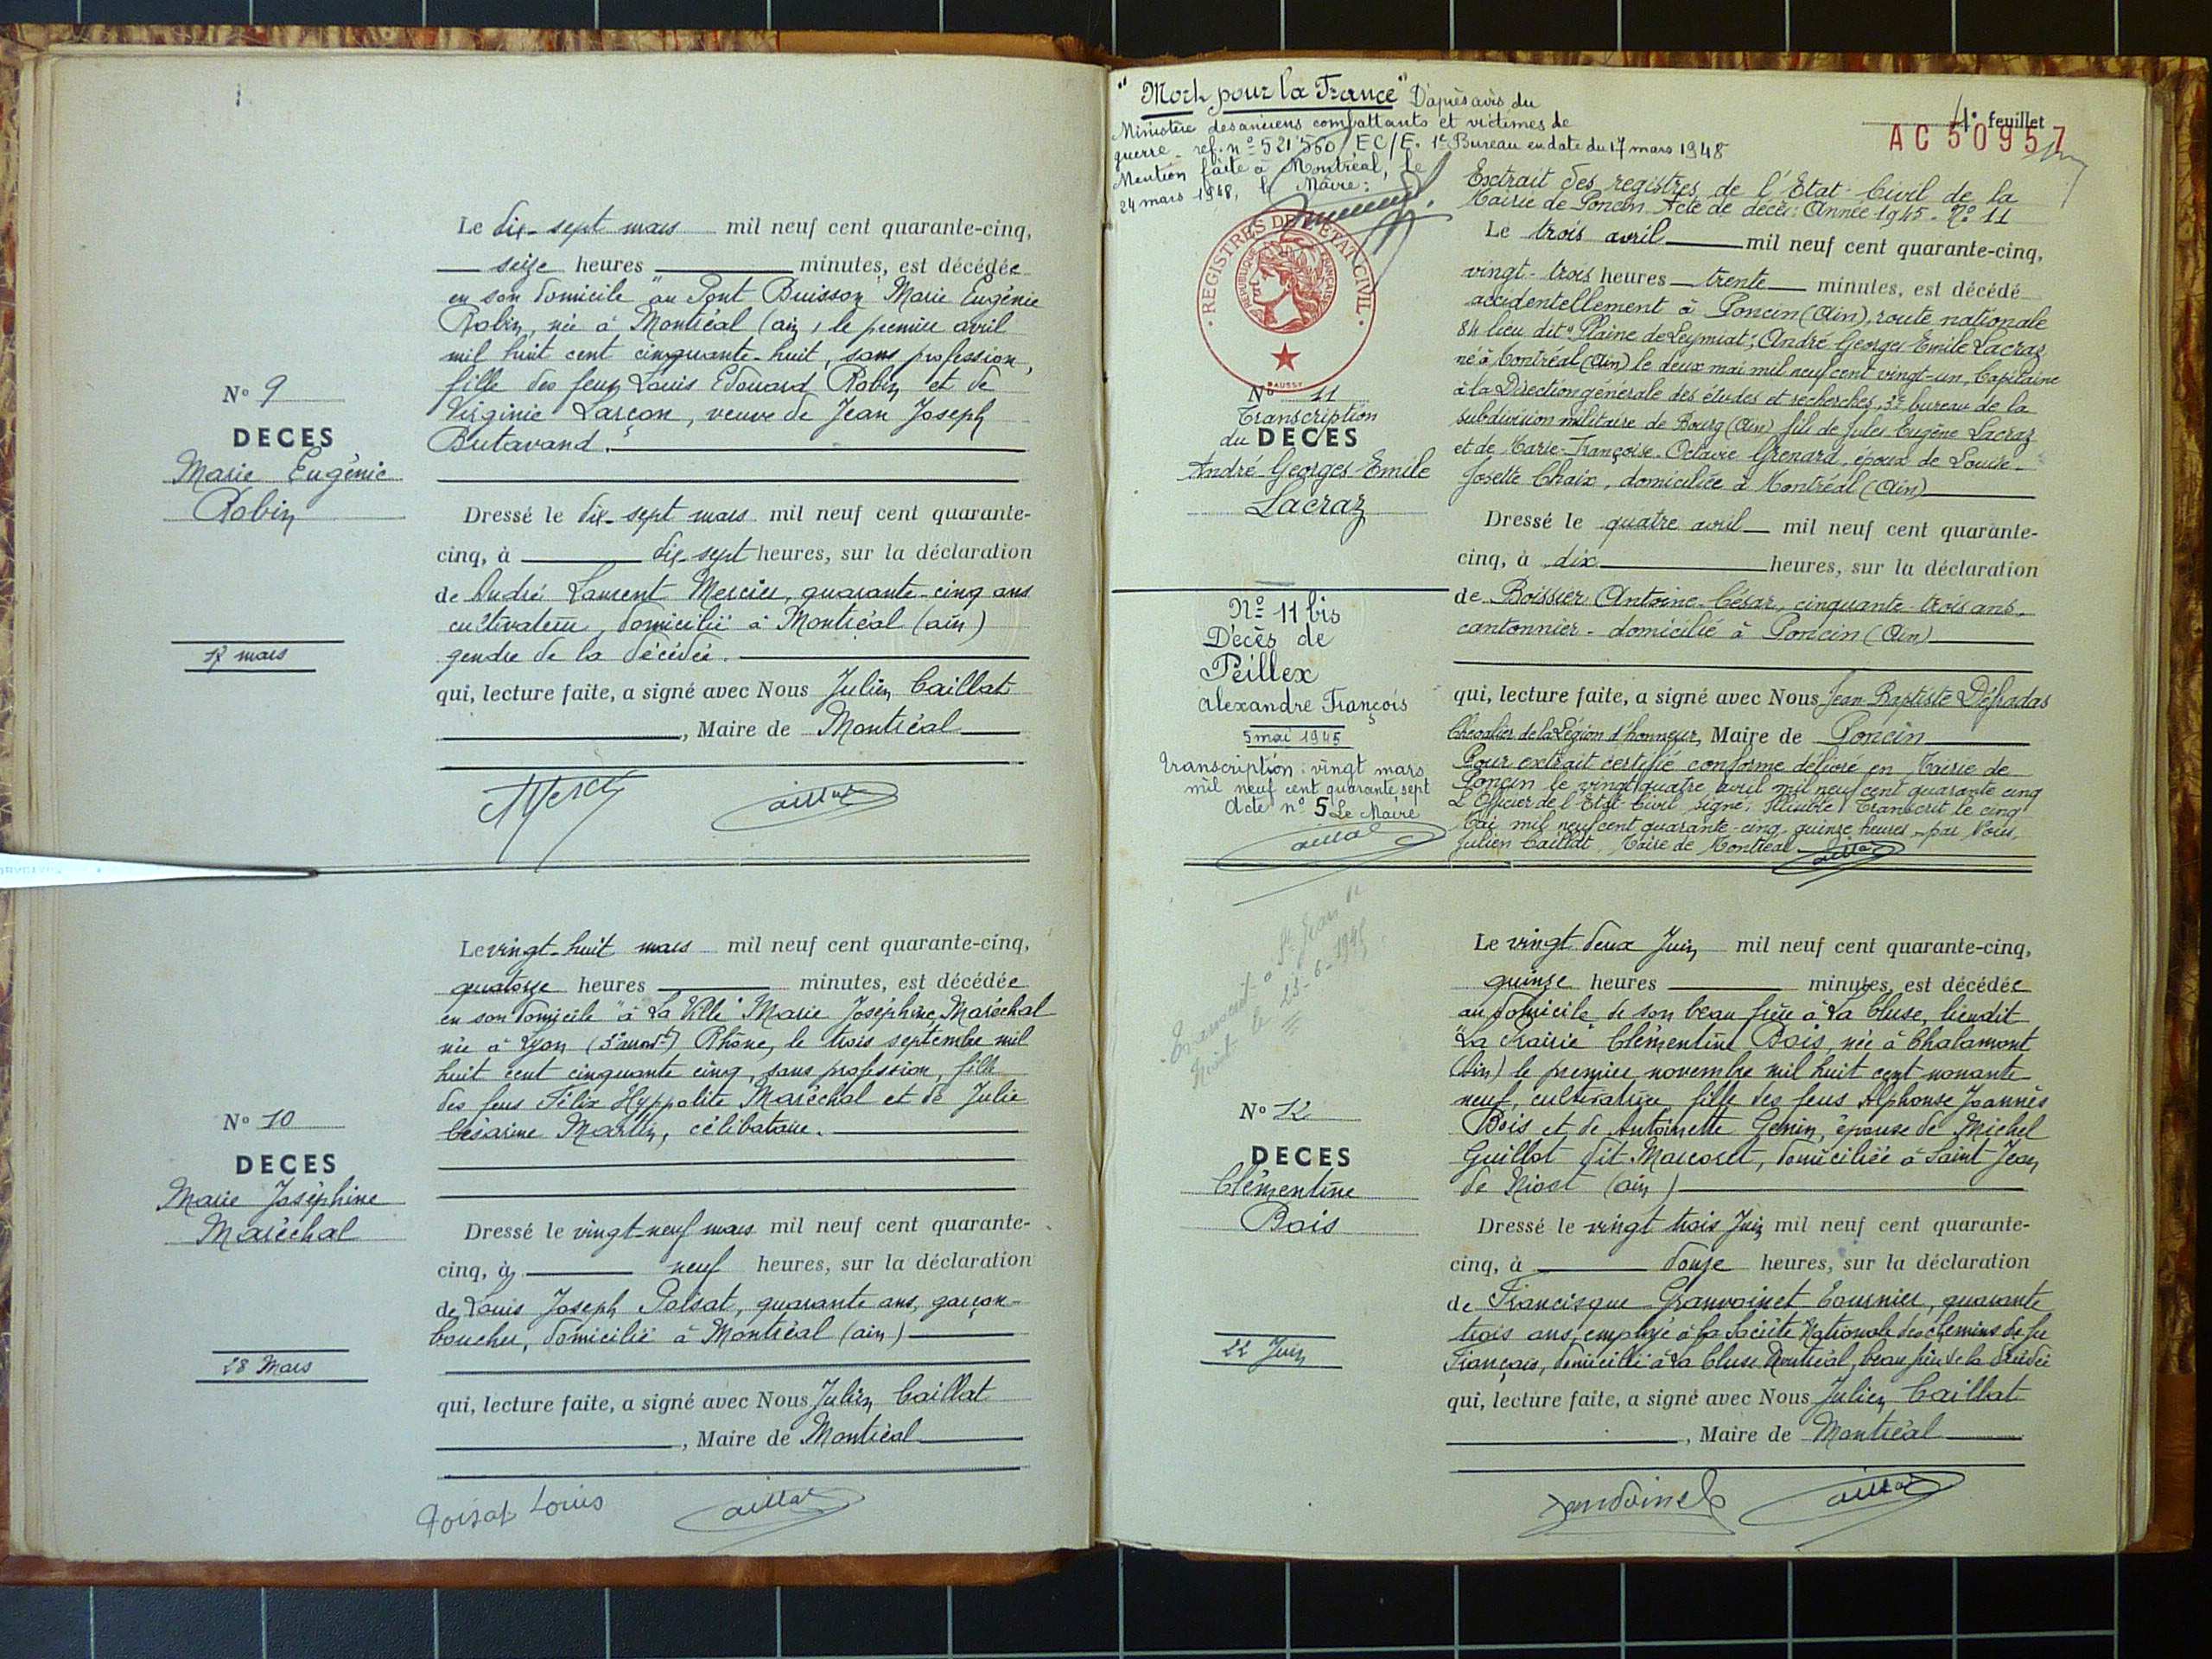 N° 9
DECES
Marie Eugénie
Robin
17 mars
Le dix-sept mars mil neuf cent quarante-cinq,
seize heures minutes, est décédée
en son domicile "au Pont Buisson" Marie Eugénie
Robin, née à Montréal (ain), le premier avril
mil huit cent cinquante-huit, sans profession,
fille des feux Louis Edouard Robin et de
Virginie Larçon, veuve de Jean Joseph
Butavand.
Dressé le dix-sept mars mil neuf cent quarante-
cinq, à dix-sept heures, sur la déclaration
de André Laurent Mercier, quarante-cinq ans
cultivateur, domicilié à Montréal (ain)
gendre de la décédée.
qui, lecture faite, a signé avec Nous Julien Caillat
, Maire de Montréal
N° 10
DECES
Marie Joséphine
Maréchal
28 Mars
Le vingt-huit mars mil neuf cent quarante-cinq,
quatorze heures minutes, est décédée
en son domicile "à La Ville" Marie Joséphine Maréchal
née à Lyon (5e arrondt) Rhône, le trois septembre mil
huit cent cinquante cinq, sans profession, fille
des feus Félix Hyppolite Maréchal et de Julie
Césarine Martin, célibataire.
Dressé le vingt-neuf mars mil neuf cent quarante-
cinq, à neuf heures, sur la déclaration
de Louis Joseph Poisat, quarante ans, garçon-
boucher, domicilié à Montréal (ain)
qui, lecture faite, a signé avec Nous Julien Caillat
, Maire de Montréal
Poisat Louis
"Mort pour la France" D'après avis du
Ministère des anciens combattants et victimes de
guerre - ref. n° 521 560 / EC/E. 1er Bureau en date du 17 mars 1948
Mention faite à Montréal, le
24 mars 1948, le Maire:
4e feuillet
AC 50957
REGISTRES DE L'ETAT-CIVIL
REPUBLIQUE FRANÇAISE
BAUSSY
N° 11
Transcription
du DECES
André Georges Emile
Lacraz
Extrait des registres de l'Etat-Civil de la
Mairie de Poncin. Acte de décès: Année 1945 - N° 11
Le trois avril mil neuf cent quarante-cinq,
vingt-trois heures trente minutes, est décédé
accidentellement à Poncin (Ain), route nationale
84 lieu dit "Plaine de Leymiat"; André Georges Emile Lacraz
né à Montréal (Ain) le deux mai mil neuf cent vingt-un, Capitaine
à la Direction générale des études et recherches, 3e bureau de la
subdivision militaire de Bourg (Ain) fils de Jules Eugène Lacraz
et de Marie-Françoise-Octavie Grenard, époux de Louise-
Josette Chaix, domiciliée à Montréal (Ain)
Dressé le quatre avril mil neuf cent quarante-
cinq, à dix heures, sur la déclaration
de Boissier Antoine-César, cinquante-trois ans,
cantonnier - domicilié à Poncin (Ain)
qui, lecture faite, a signé avec Nous Jean Baptiste Défradas
Chevalier de la Légion d'honneur, Maire de Poncin
Pour extrait certifié conforme délivré en Mairie de
Poncin le vingt quatre avril mil neuf cent quarante cinq
L'Officier de l'Etat-Civil signé: Illisible. Transcrit le cinq
Mai mil neuf cent quarante-cinq quinze heures par Nous,
Julien Caillat, Maire de Montréal
N° 11 bis
Décès de
Peillex
Alexandre François
5 mai 1945
transcription: vingt mars
mil neuf cent quarante sept
acte n° 5 Le Maire
Transcrit à St Jean de
Niost le 23-6-1945
N° 12
DECES
Clémentine
Bois
22 Juin
Le vingt deux Juin mil neuf cent quarante-cinq,
quinze heures minutes, est décédée
au domicile de son beau frère à La Cluse, lieudit
"La Mairie" Clémentine Bois, née à Chalamont
(Ain) le premier novembre mil huit cent nonante-
neuf, cultivatrice, fille des feus Alphonse Joannès
Bois et de Antoinette Genin, épouse de Michel
Guillot dit Marcoret, domiciliée à Saint-Jean
de Niost (ain)
Dressé le vingt trois Juin mil neuf cent quarante-
cinq, à douze heures, sur la déclaration
de Francisque Granvoinet Tournier, quarante
trois ans, employé à la Société Nationale des chemins de fer
Français, domicilié à La Cluse Montréal, beau frère de la décédée
qui, lecture faite, a signé avec Nous Julien Caillat
, Maire de Montréal